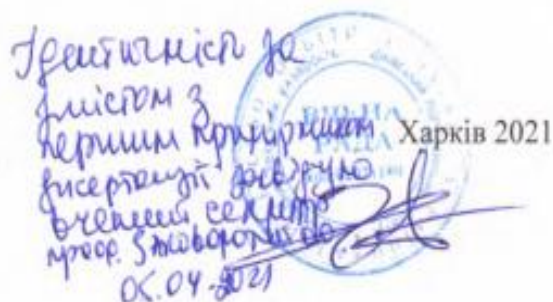 Ідентичність за
змістом з
першим примірником
дисертації засвідчую
вчений секретар
проф.
05.04.2021
ВЧЕНА
РАДА
Харків 2021